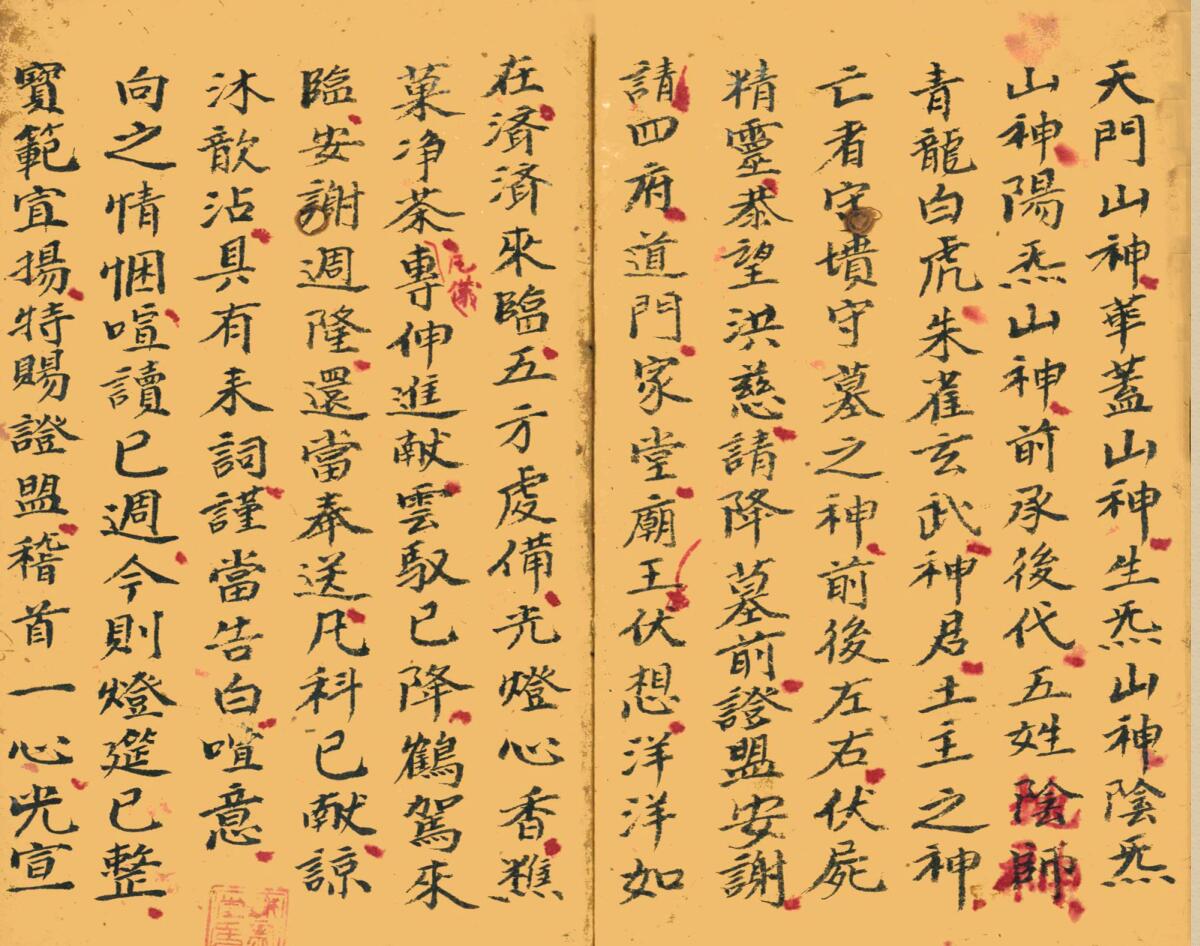 天門山神華蓋山神生炁山神陰炁
山神陽炁山神前承後代五姓陰師
青龍白虎朱雀玄武神君土主之神
亡者守墳守墓之神前後左右伏屍
精靈恭望洪慈請降墓前證盟安謝
請四府道門家堂廟王伏想洋洋如
在濟濟來臨五方處備光燈心香樵
菓净茶專伸進献雲馭已降鶴駕來
凡備
臨安謝週隆還當奉送凡科已献諒
沐歆沾具有未詞謹當告白喧意
向之情悃喧讀已週今則燈筵已整
寶範宜揚特賜證盟稽首一心光宣